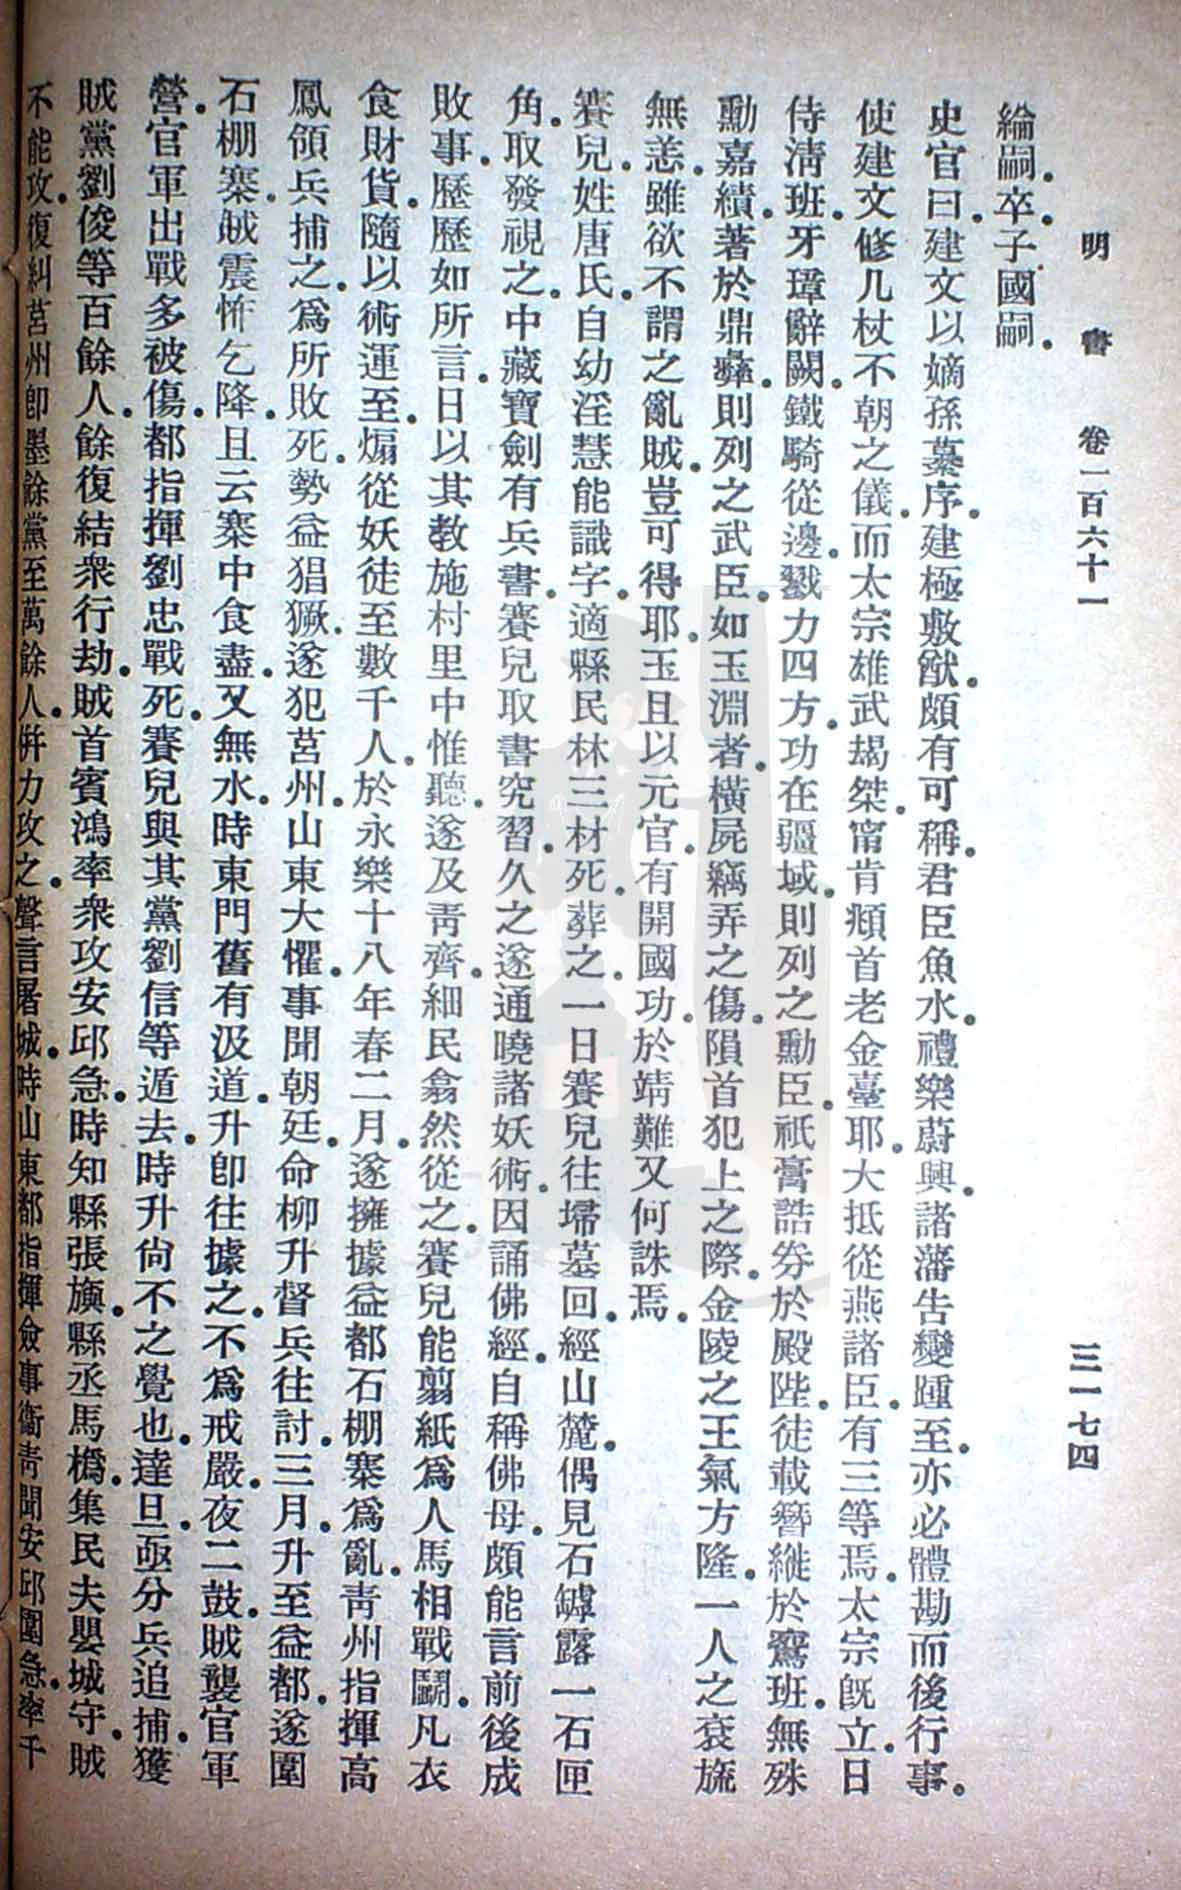 明書 卷一百六十一 三一七四
綸嗣。卒。子國嗣。
史官曰。建文以嫡孫纂序。建極敷猷。頗有可稱。君臣魚水。禮樂蔚興。諸藩告變踵至。亦必體勘而後行事。
使建文修几杖不朝之儀。而太宗雄武朅桀。甯肯頫首老金臺耶。大抵從燕諸臣。有三等焉。太宗既立。日
侍淸班。牙璋辭闕。鐵騎從邊。戮力四方。功在疆域。則列之勳臣。祇膏誥券於殿陛。徒載簪縰於鵷班。無殊
勳嘉績。著於鼎彝。則列之武臣。如玉淵者。橫屍竊弄之傷。隕首犯上之際。金陵之王氣方隆。一人之袞旒
無恙。雖欲不謂之亂賊。豈可得耶。玉且以元官。有開國功。於靖難又何誅焉。
賽兒。姓唐氏。自幼淫慧能識字。適縣民林三材死。葬之。一日賽兒往埽墓回。經山麓。偶見石罅露一石匣
角。取發視之。中藏寶劍有兵書。賽兒取書究習。久之。遂通曉諸妖術。因誦佛經。自稱佛母。頗能言前後成
敗事。歷歷如所言。日以其教施村里中惟聽。遂及靑齊。細民翕然從之。賽兒能剪紙爲人馬相戰鬭。凡衣
食財貨。隨以術運至。煽從妖徒至數千人。於永樂十八年春二月。遂擁據益都石棚寨爲亂。靑州指揮高
鳳領兵捕之。爲所敗死。勢益猖獗。遂犯莒州。山東大懼。事聞朝廷。命柳升督兵往討。三月。升至益都。遂圍
石棚寨。賊震怖乞降。且云寨中食盡。又無水。時東門舊有汲道。升卽往據之。不爲戒嚴。夜二鼓。賊襲官軍
營。官軍出戰多被傷。都指揮劉忠戰死。賽兒與其黨劉信等遁去。時升尙不之覺也。達旦。亟分兵追捕。獲
賊黨劉俊等百餘人。餘復結衆行劫。賊首賓鴻率衆攻安邱急。時知縣張旟。縣丞馬撝。集民夫嬰城守。賊
不能攻。復糾莒州卽墨餘黨至萬餘人。幷力攻之。聲言屠城。時山東都指揮僉事衞靑聞安邱圍急。率千